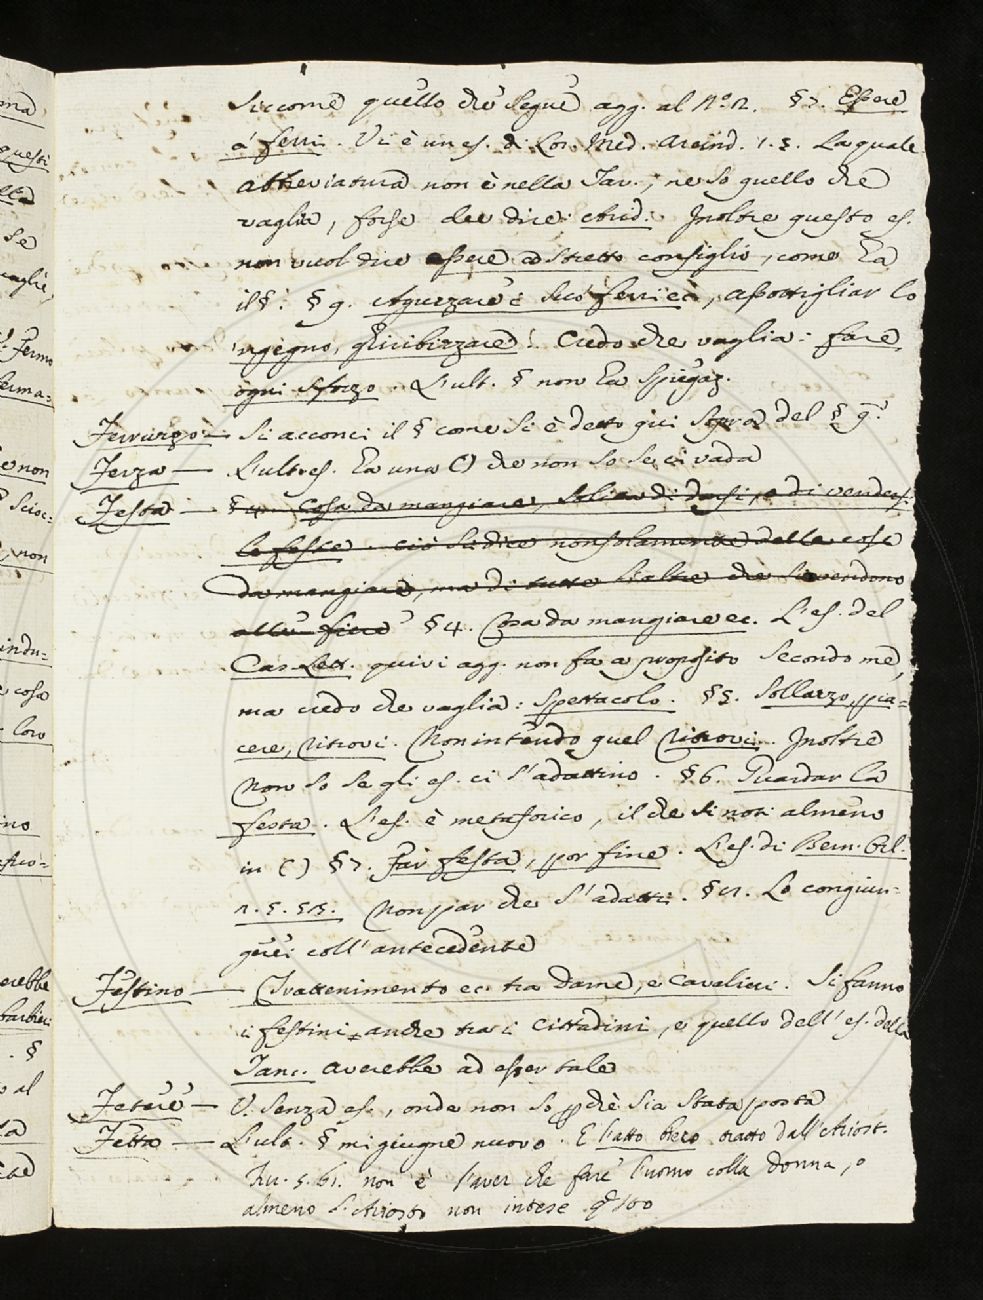 siccome quello che segue agg. al N.º 2. § 7. Essere
a' ferri. Vi è un es. di Lor. Med. 1. 3. La quale
abbreviatura non è nella Tav., ne so quello che
vaglia, forse dee dire: Arid. Inoltre questo es.
non vuol dire essere a stretto consiglio, come ha
il §. § 9. Aguzzare i suoi ferri ec., assottigliar lo
'ngegno, ghiribizzare. Credo che vaglia: fare
ogni sforzo. L'ult. § non ha spiegaz.
Ferruzzo — Si acconci il § come si è detto qui sopra del § 9.
Ferza — L'ult. es. ha una () che non so se ci vada
Festa — § 4. Cosa da mangiare, solita di darsi, o di vendersi
le feste. ciò si dice non solamente delle cose
da mangiare, ma di tutte l'altre che si vendono
alle fiere § 4. Cosa da mangiare ec. L'es. del
Cas. Lett. quivi agg. non fa a proposito secondo me,
ma credo che vaglia: Spettacolo. § 5. Sollazzo, pia=
cere, ritrovi. Non intendo quel ritrovi. Inoltre
non so se gli es. ci s'adattino. § 6. Guardar la
festa. L'es. è metaforico, il che si noti almeno
in () § 7. Far festa, por fine. L'es. di Bern. Orl.
2. 5. non par che s'adatti. § 12. Lo congiun=
gerei coll'antecedente
Festino — Trattenimento ec. tra dame, e cavalieri. Si fanno
i festini anche tra i cittadini, e quello dell'es. della
Tanc. averebbe ad esser tale
Fetere — V. senza es., onde non so pchè sia stata posta
Fetta — L'ult. § mi giugne nuovo. E l'atto tratto dall'Ariost.
Fur. 5. 61. non è l'aver che fare l'uomo colla donna, o
almeno l'Ariosto non intese qsto